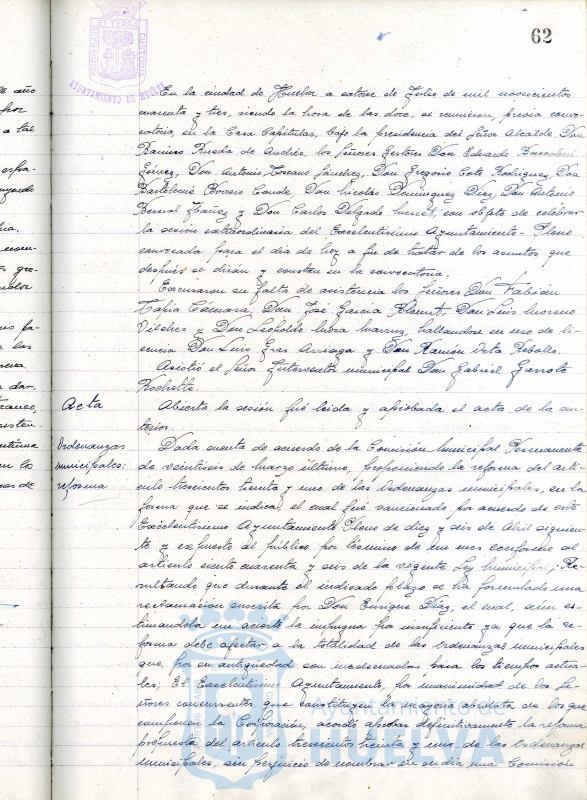 62
PORTUS MARIS ET TERRAE CUSTODIA
AYUNTAMIENTO DE HUELVA
En la ciudad de Huelva a catorce de Julio de mil novecientos
cuarenta y tres, siendo la hora de las doce, se reunieron, previa convo-
catoria, en la Casa Capitular, bajo la presidencia del Señor Alcalde Don
Ramiro Rueda de Andrés, los Señores Gestores Don Eduardo
Gómez, Don Antonio Toscano Sánchez, Don Gregorio Coto Rodríguez, Don
Bartolomé Borrero Conde, Don Nicolás Domínguez Díaz, Don Antonio
Bernal Ibáñez y Don Carlos Delgado con objeto de celebrar
la sesión extraordinaria del Excelentísimo Ayuntamiento-Pleno
convocada para el día de hoy a fin de tratar de los asuntos que
después se dirán y constan en la convocatoria.
Excusaron su falta de asistencia los Señores Don Fabián
Tapia Cámara, Don José García Don Luis Moreno
Vilches y Don Leopoldo hallándose en uso de li-
cencia Don Luis Gras Arriaga y Don Ramón Rebollo.
Asistió el Señor Interventor municipal Don Gabriel Garrote
Acta
Abierta la sesión fué leída y aprobada el acta de la an-
terior.
Ordenanzas
municipales:
reforma
Dada cuenta de acuerdo de la Comisión Municipal Permanente
de veintiseis de marzo último, proponiendo la reforma del artí-
culo trescientos treinta y uno de las Ordenanzas municipales, en la
forma que se indica, el cual fué sancionado por acuerdo de este
Excelentísimo Ayuntamiento Pleno de diez y seis de Abril siguien-
te y expuesto al público por término de un mes conforme al
artículo ciento cuarenta y seis de la vigente Ley Municipal; Re-
sultando que durante el indicado plazo se ha formulado una
reclamación suscrita por Don Enrique Díaz, el cual, aún es-
timándola un acierto la impugna por insuficiente ya que la re-
forma debe afectar a la totalidad de las Ordenanzas municipales
que, por su antigüedad son inadecuadas para los tiempos actua-
les; El Excelentísimo Ayuntamiento, por unanimidad de los Se-
ñores concurrentes que constituyen la mayoría absoluta de los que
componen la Corporación, acordó aprobar definitivamente la reforma
propuesta del artículo trescientos treinta y uno de las Ordenanzas
Municipales, sin perjuicio de nombrar en su día una Comisión
Ayuntamiento de
HUELVA